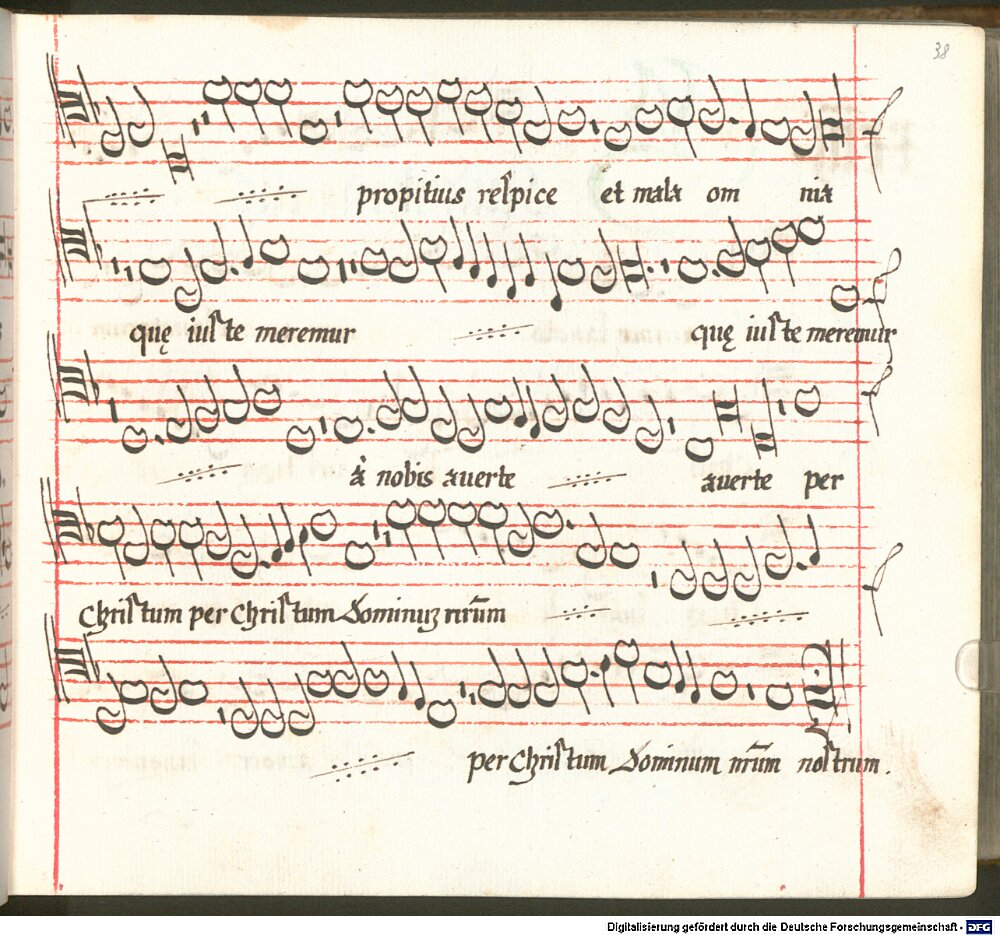 38
propitius respice et mala om nia
quę iuste meremur quę iuste meremur
à nobis auerte auerte per
Christum per Christum Dominuz nrūm
per Christum Dominum nrūm nostrum.
Digitalisierung gefördert durch die Deutsche Forschungsgemeinschaft - DFG